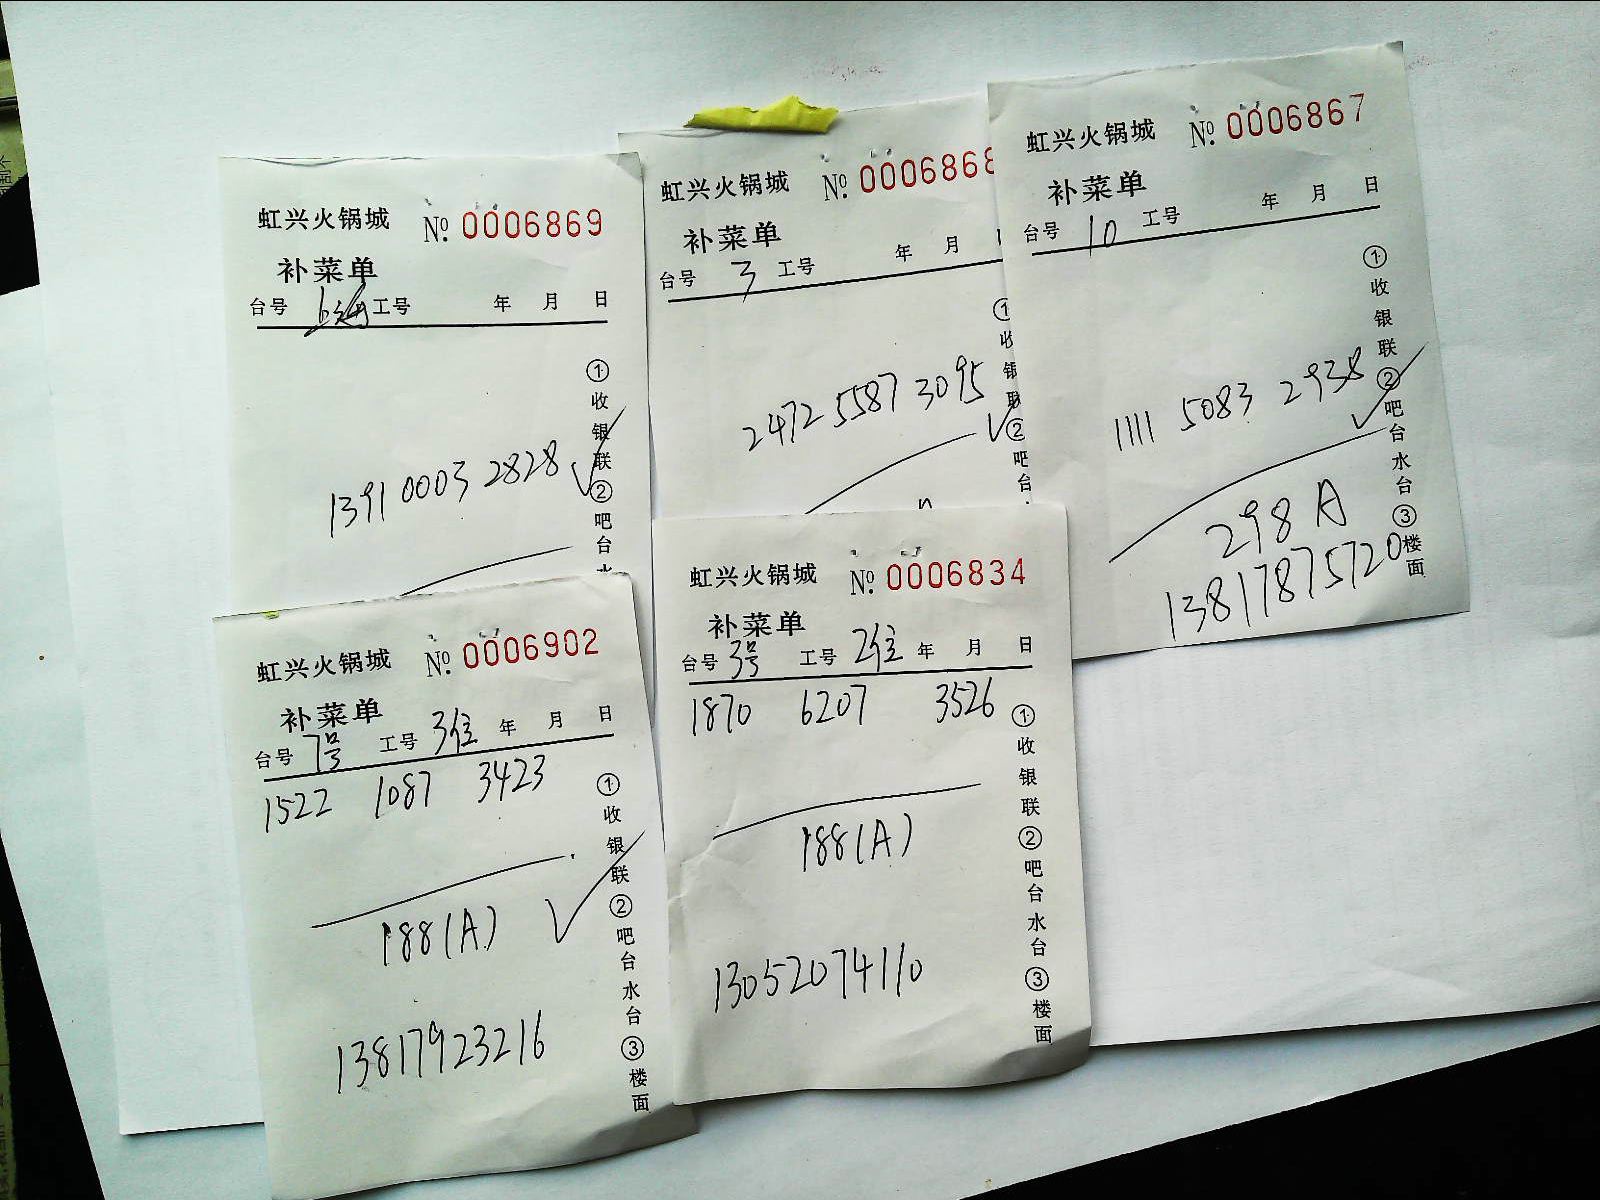 虹兴火锅城 № 0006869
补菜单
台号 工号 年 月 日
1391 0003 2828
①收银联②吧台水
虹兴火锅城 № 0006868
补菜单
台号 3 工号 年 月
2472 5587 3095
①收银联②吧台
虹兴火锅城 № 0006867
补菜单
台号 10 工号 年 月 日
1111 5083 2938
298 A
13817875720
①收银联②吧台水台③楼面
虹兴火锅城 № 0006902
补菜单
台号 7号 工号 3位 年 月 日
1522 1087 3423
188(A)
13817923216
①收银联②吧台水台③楼面
虹兴火锅城 № 0006834
补菜单
台号 3号 工号 2位 年 月 日
1870 6207 3526
188(A)
13052074110
①收银联②吧台水台③楼面